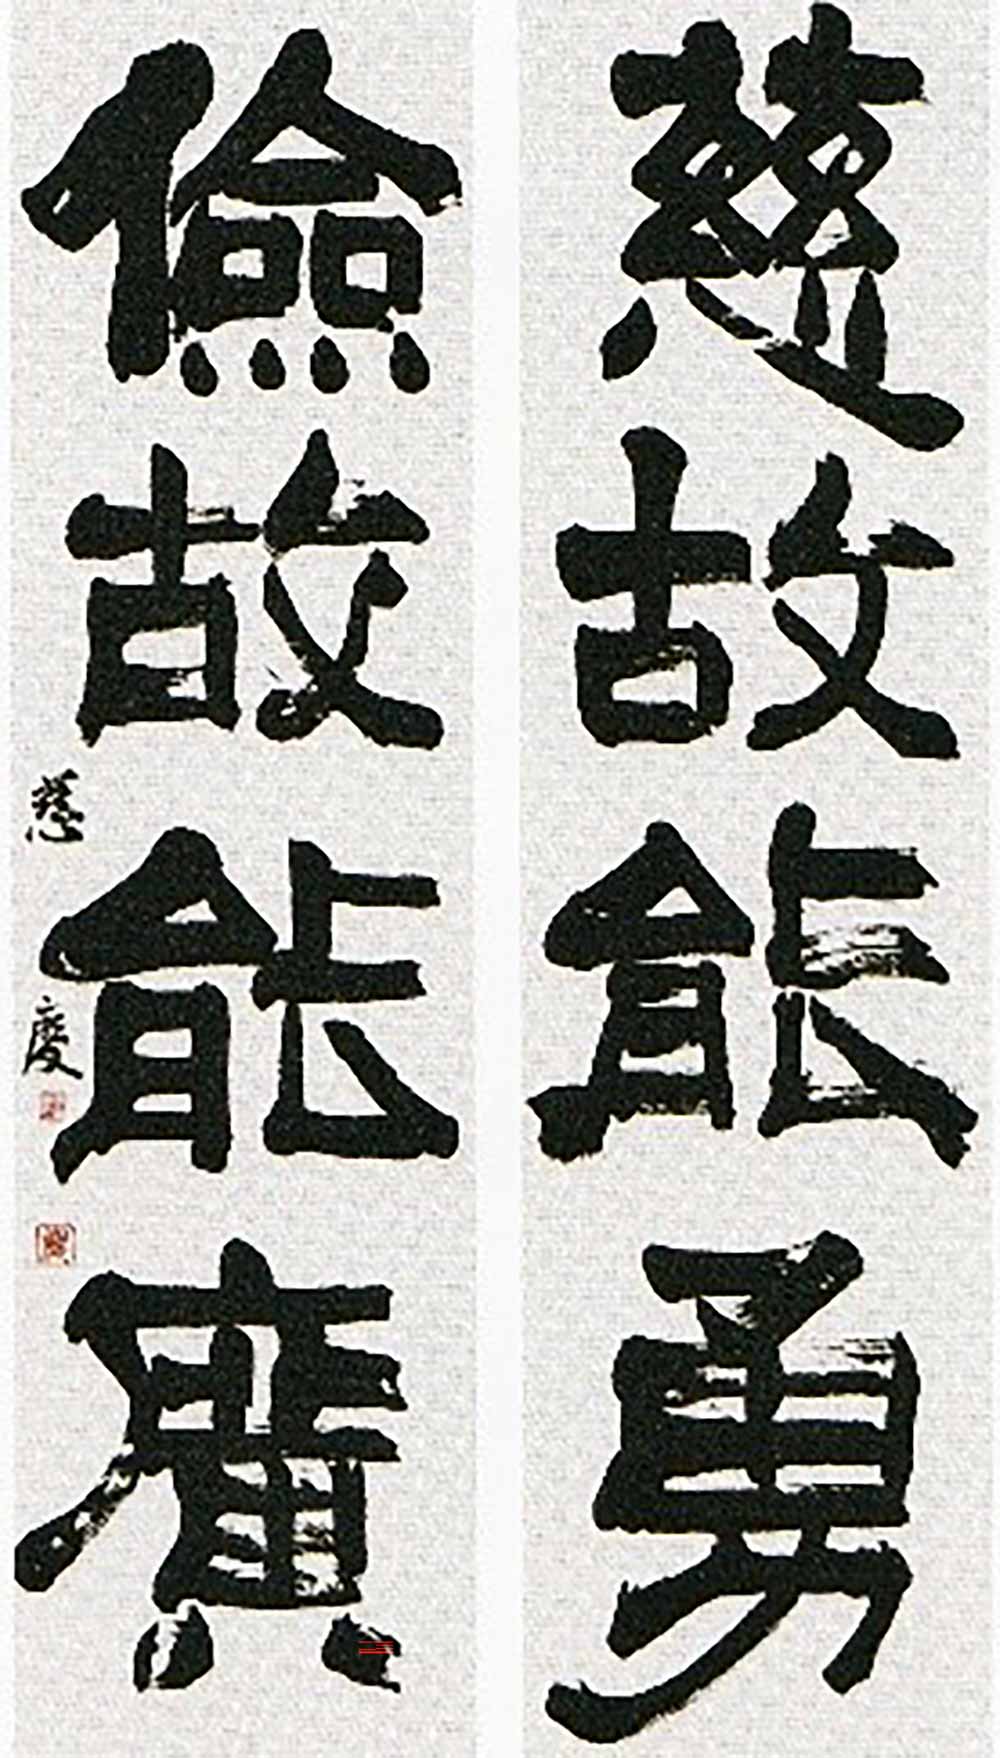 慈故能勇
儉故能廣
慈慶